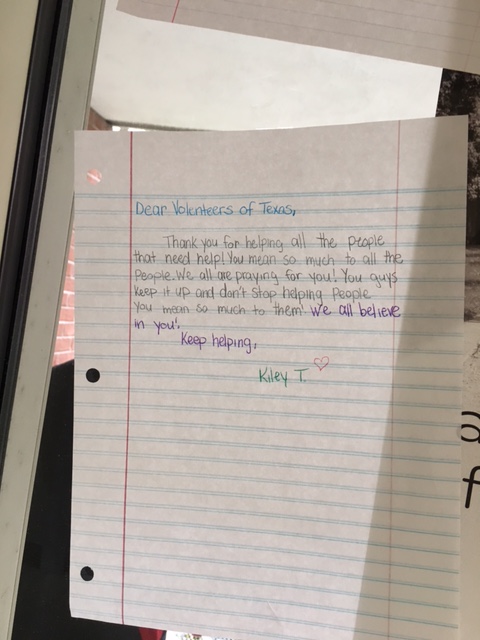 Dear Volenteers of Texas,
Thank you for helping all the people
that need help! You mean so much to all the
people. We all are praying for you! You guys
keep it up and don't stop helping people
you mean so much to them! We all believe
in you!
Keep helping,
Kiley T.